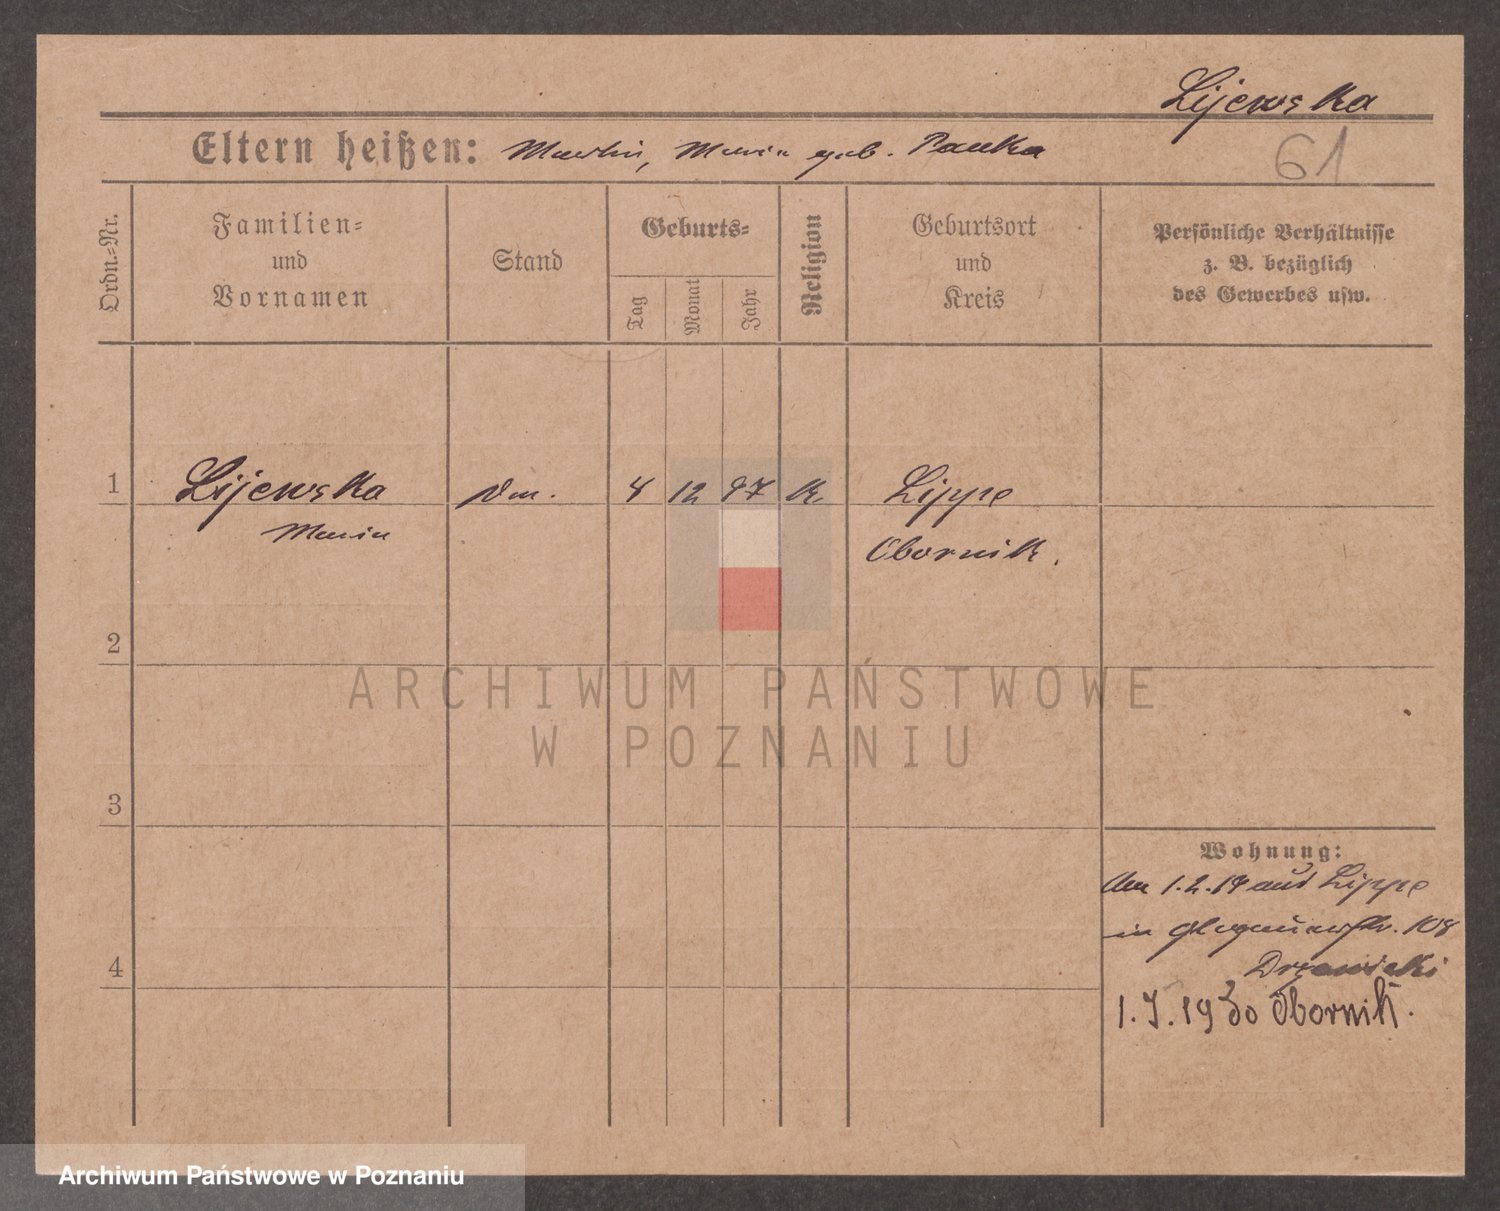 Lijewska
61
Eltern heißen: Martin, Maria geb. Pauka
Ordn.-Nr.
Familien-
und
Vornamen
Stand
Geburts-
Tag
Monat
Jahr
Religion
Geburtsort
und
Kreis
Persönliche Verhältnisse
z. B. bezüglich
des Gewerbes usw.
1 Lijewska 12 97 k. Lippe
Maria Obornik.
2
ARCHIWUM PAŃSTWOWE
W POZNANIU
3
Wohnung:
Am 1.2.19 aus Lippe
in Glogauerstr. 108
4
1. 1930 Obornik.
Archiwum Państwowe w Poznaniu